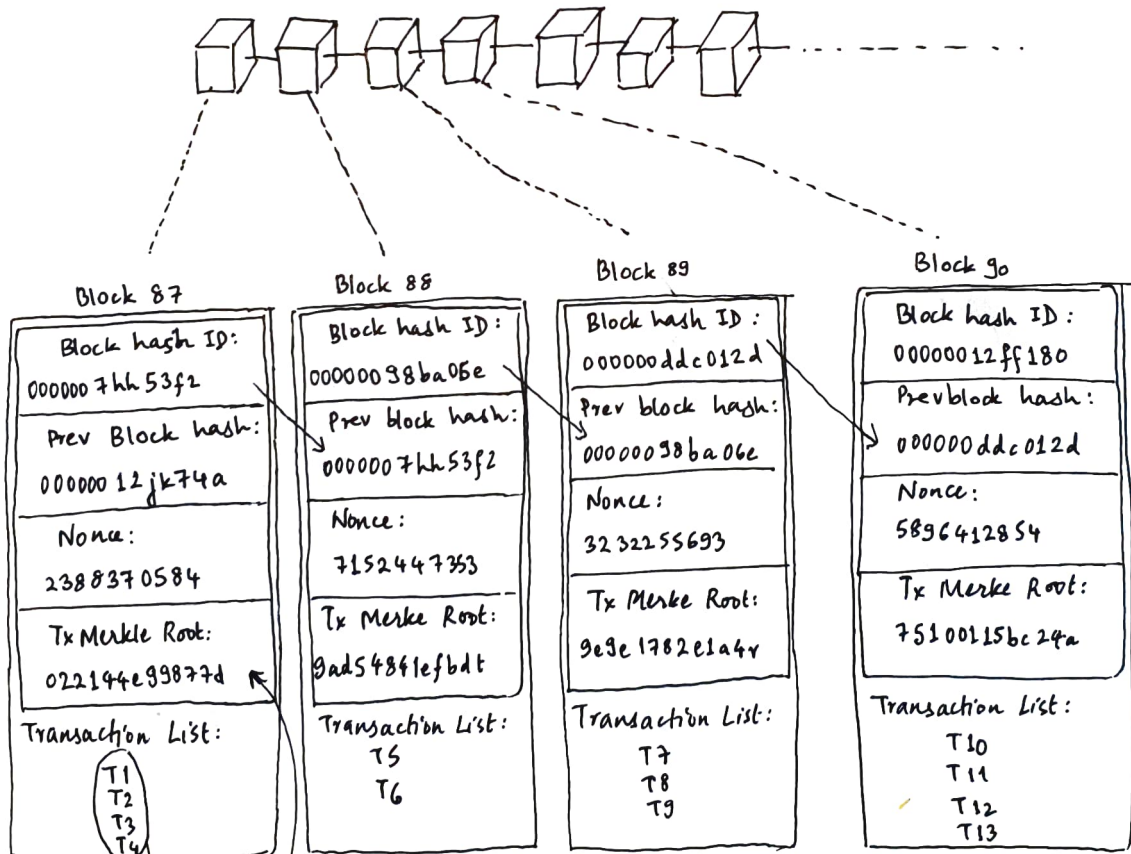 Block 87
Block hash ID:
000000 7hh53f2
Prev Block hash:
000000 12jk74a
Nonce:
2388370584
Tx Merkle Root:
022144e99877d
Transaction List:
T1
T2
T3
T4
Block 88
Block hash ID:
00000098ba06e
Prev block hash:
0000007hh53f2
Nonce:
7152447353
Tx Merke Root:
9ad54841efbdt
Transaction List:
T5
T6
Block 89
Block hash ID:
000000ddc012d
Prev block hash:
00000098ba06e
Nonce:
3232255693
Tx Merke Root:
9e9e1782e1a4r
Transaction List:
T7
T8
T9
Block 90
Block hash ID:
00000012ff180
Prev block hash:
000000ddc012d
Nonce:
5896412854
Tx Merke Root:
75100115bc24a
Transaction List:
T10
T11
T12
T13